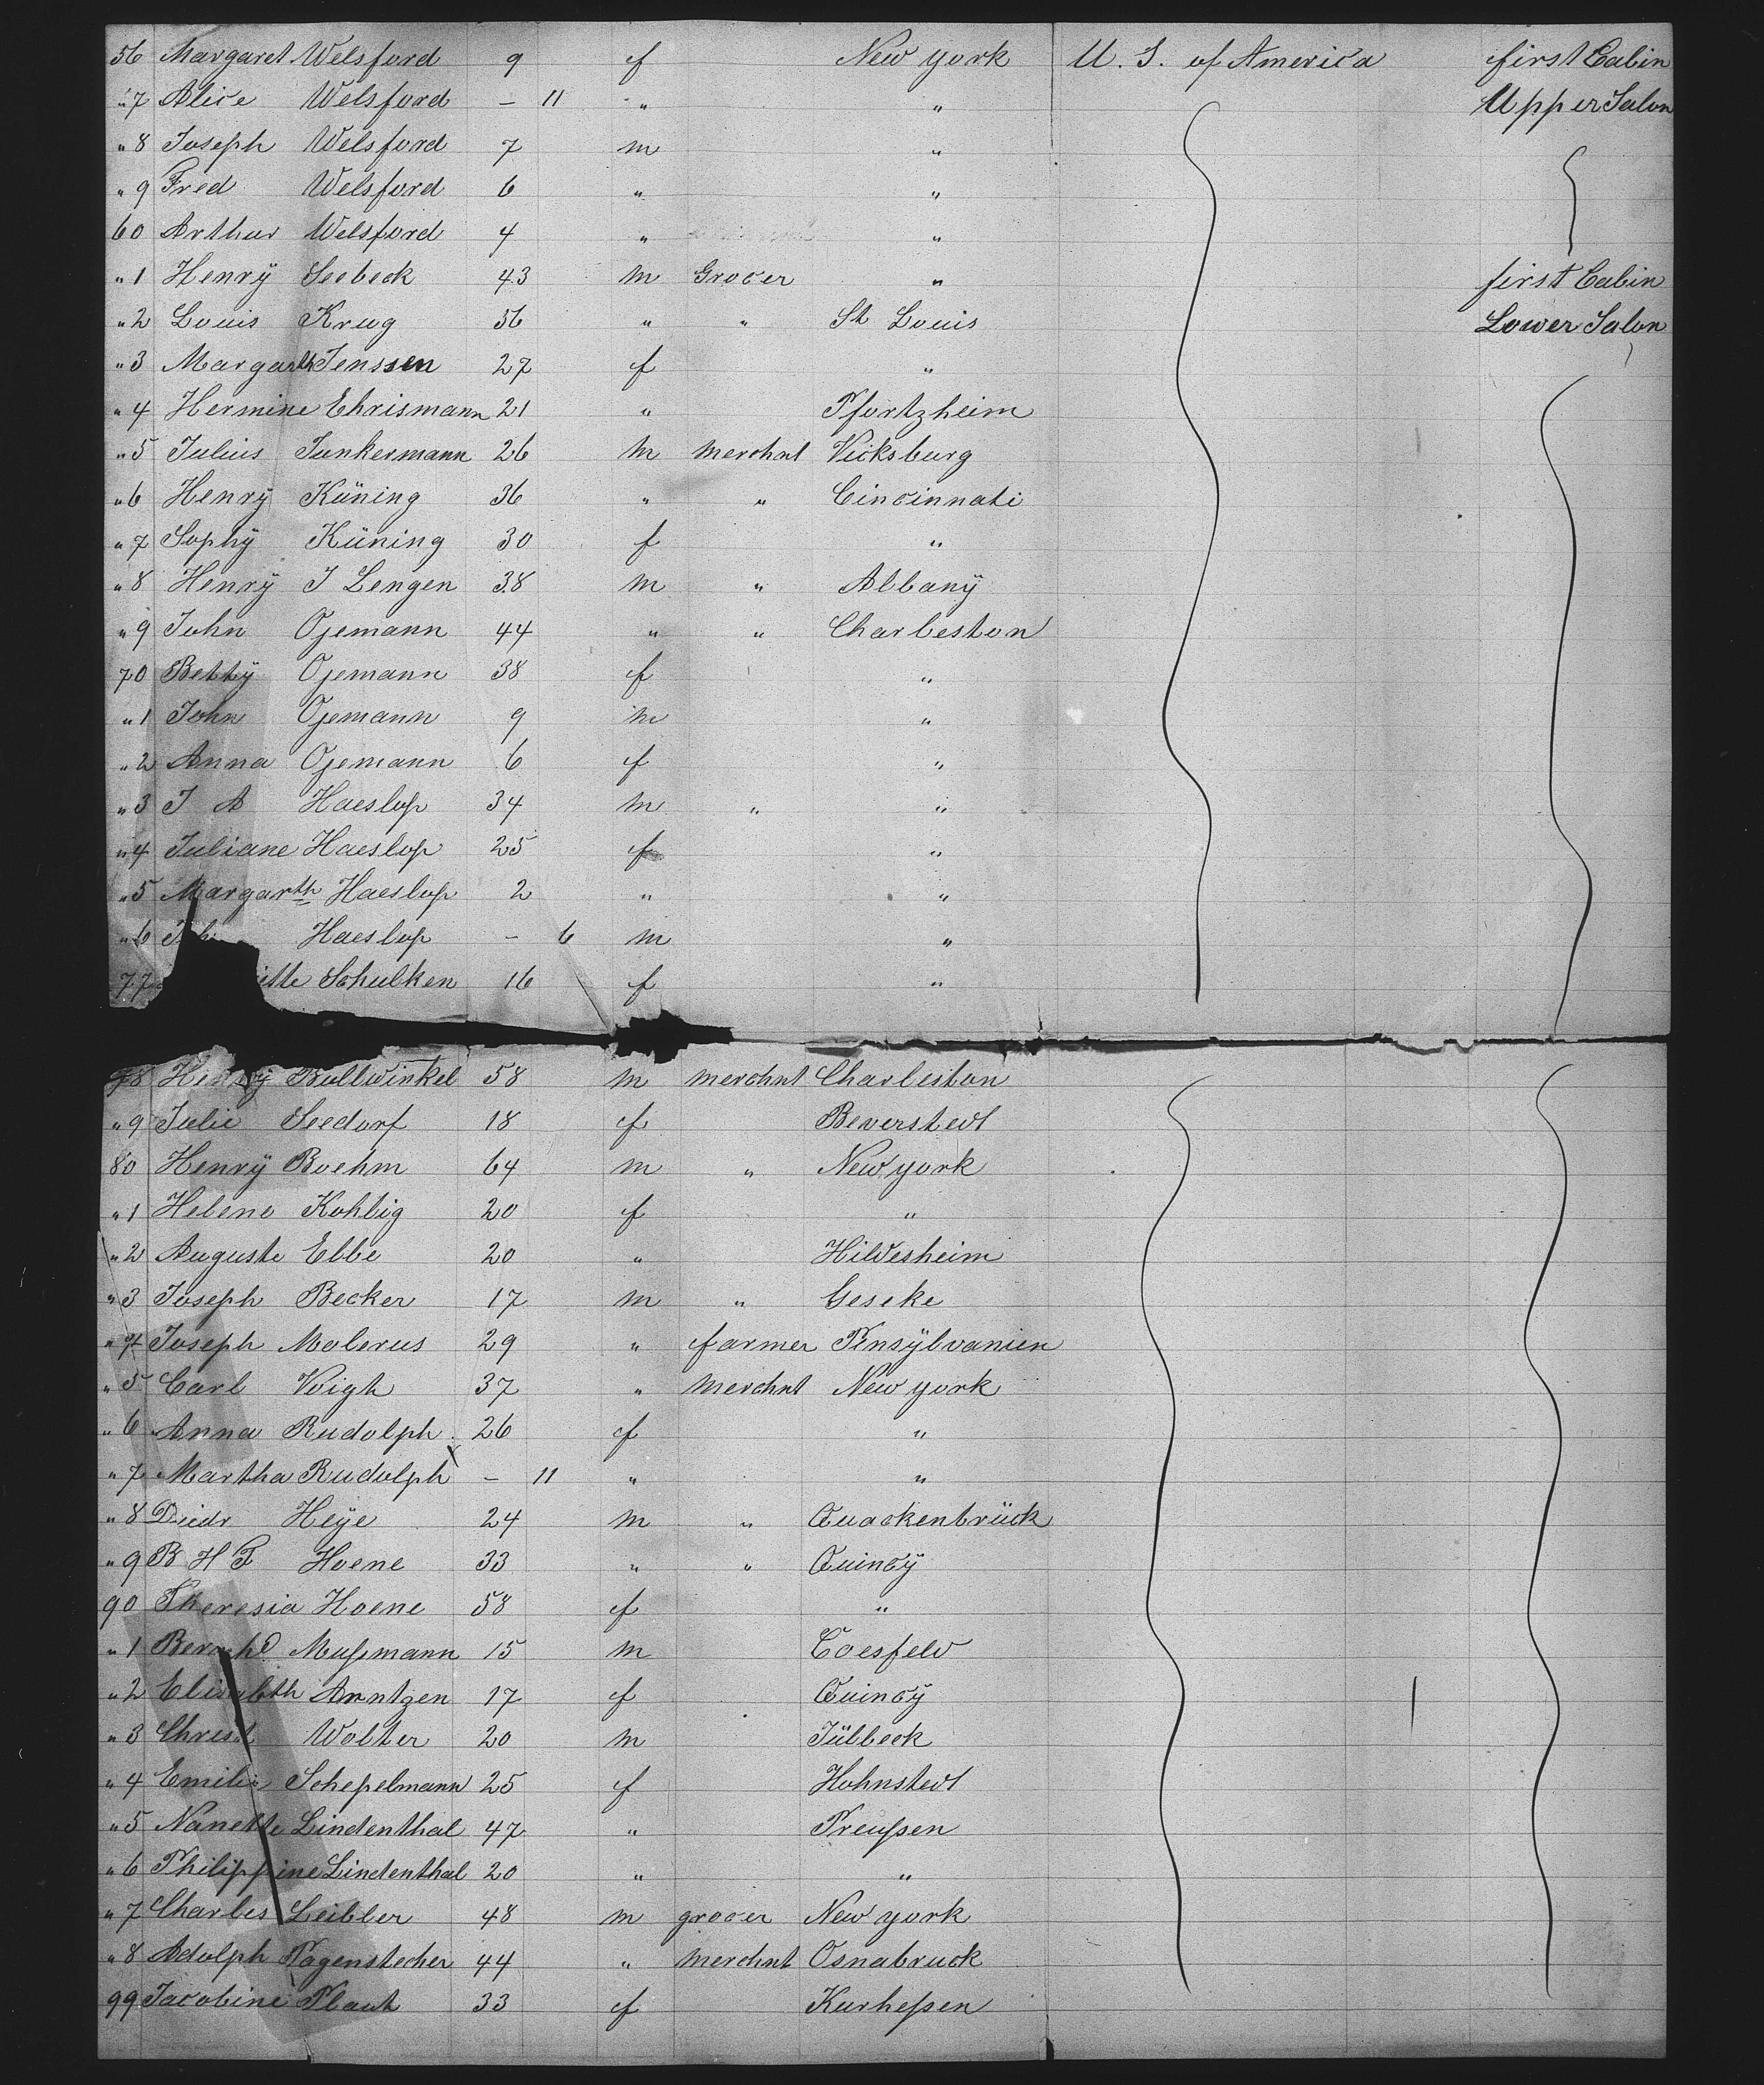 56 Margaret Welsford 9 f New York U. S. of America first Cabin
"7 Alice Welsford – 11 " " Upper Salon
"8 Joseph Welsford 7 m "
"9 Fred Welsford 6 " "
60 Arthur Welsford 4 " "
"1 Henrÿ Seebeck 43 m Grocer " first Cabin
"2 Louis Krug 56 " " St Louis Lower Salon
"3 Margarth Jenssen 27 f "
"4 Hermine Ehrismann 21 " Pfortzheim
"5 Julius Junkermann 26 m merchnt Vicksburg
"6 Henrÿ Küning 36 " " Cincinnati
"7 Sophÿ Küning 30 f "
"8 Henrÿ J Lengen 38 m " Albanÿ
"9 John Ojemann 44 " " Charleston
70 Bettÿ Ojemann 38 f "
"1 John Ojemann 9 m "
"2 Anna Ojemann 6 f "
"3 J A Haeslop 34 m " "
"4 Juliane Haeslop 25 f "
"5 Margarth Haeslop 2 " "
"6 Haeslop – 6 m "
77 Schulken 16 f "
78 Henrÿ Bullwinkel 58 m merchnt Charleston
"9 Julie Seedorf 18 f Beverstedt
80 Henrÿ Boehm 64 m " New york
"1 Helene Kohlig 20 f "
"2 Auguste Ebbe 20 " Hildesheim
"3 Joseph Becker 17 m " Geseke
"4 Joseph Molerus 29 " farmer Pensÿlvanien
"5 Carl Voigh 37 " Merchnt New york
"6 Anna Rudolph 26 f "
"7 Martha Rudolph – 11 " "
"8 Diedr Heÿe 24 m " Quackenbrück
"9 B H F Hoene 33 " " Quincÿ
90 Theresia Hoene 58 f "
"1 Bernhd Mußmann 15 m Coesfeld
"2 Elisabeth Arntzen 17 f Quincÿ
"3 Christ Wolter 20 m Jübbeck
"4 Emilie Schepelmann 25 f Hohnstedt
"5 Nanette Lindenthal 47 " Preußen
"6 Philippine Lindenthal 20 " "
"7 Charles Leibler 48 m grocer New york
"8 Adolph Pagenstecher 44 " Merchnt Osnabruck
99 Jacobine Plaut 33 f Kurheßen